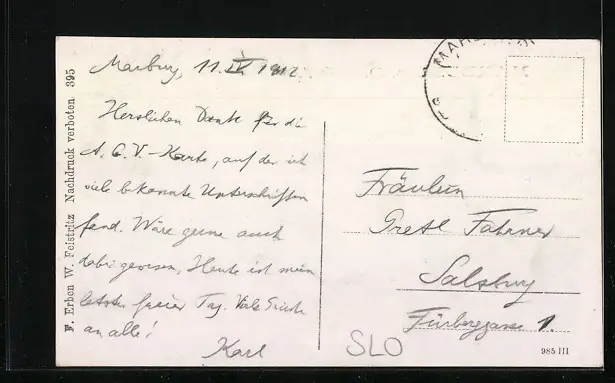 Marburg, 11. IV. 1912
Herzlichen Dank für die
A.C.V.-Karte, auf der ich
viele bekannte Unterschriften
fand. Wäre gerne auch
dabei gewesen, Heute ist mein
letzter freier Tag. Viele Grüße
an alle!
Karl
F. Erben W. Feistritz Nachdruck verboten 395
MAR
Fräulein
Gretl Fahrner
Salzburg
Fürbergasse 1.
SLO
985 III